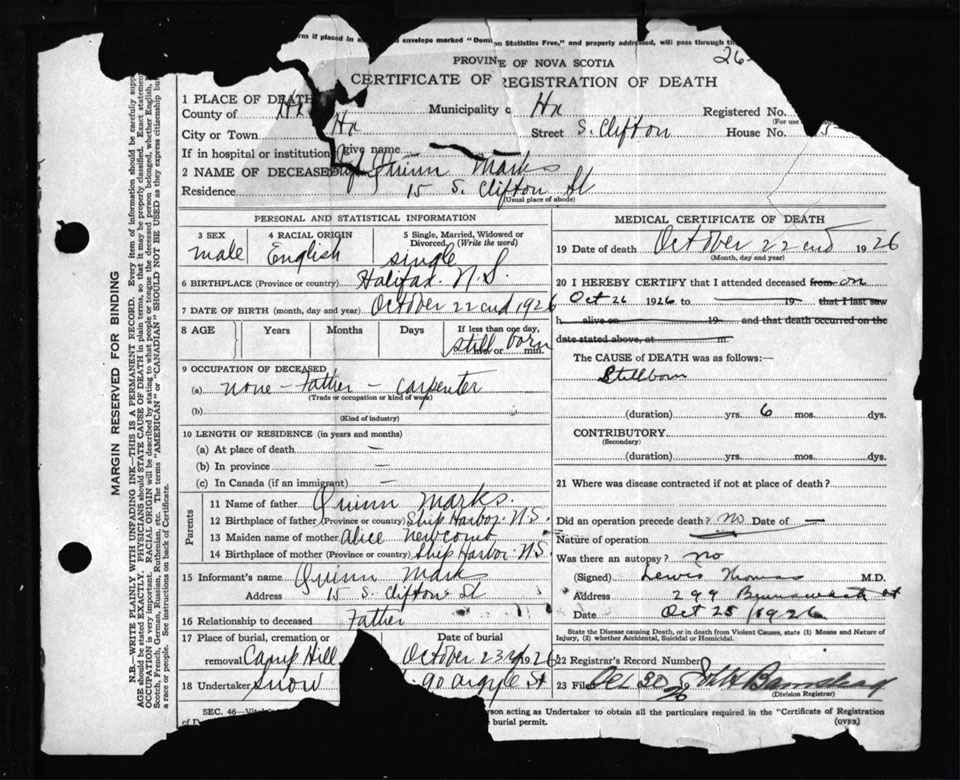 rm if placed in a envelope marked "Dom on Statistics Free," and properly addressed, will pass through th
PROVINCE OF NOVA SCOTIA
26-
CERTIFICATE OF REGISTRATION OF DEATH
1 PLACE OF DEATH
County of Hx Municipality Hx Registered No.
(For use
City or Town Hx Street S. Clifton House No. 5
If in hospital or institution give name
2 NAME OF DECEASED Quinn Marks
Residence 15 S. Clifton St
(Usual place of abode)
PERSONAL AND STATISTICAL INFORMATION
3 SEX 4 RACIAL ORIGIN 5 Single, Married, Widowed or Divorced. (Write the word)
male English single
6 BIRTHPLACE (Province or country) Halifax. N.S.
7 DATE OF BIRTH (month, day and year) October 22cnd 1926
8 AGE Years Months Days If less than one day,
still born
hrs. or min.
9 OCCUPATION OF DECEASED
(a) none - Father - carpenter
(Trade or occupation or kind of work)
(b)
(Kind of industry)
10 LENGTH OF RESIDENCE (in years and months)
(a) At place of death —
(b) In province —
(c) In Canada (if an immigrant) —
Parents
11 Name of father Quinn Marks.
12 Birthplace of father (Province or country) Ship Harbor N.S.
13 Maiden name of mother Alice Newcomb
14 Birthplace of mother (Province or country) Ship Harbor N.S.
15 Informant's name Quinn Marks
Address 15 S. Clifton St
16 Relationship to deceased Father
17 Place of burial, cremation or Date of burial
removal Camp Hill October 23rd 1926
18 Undertaker Snow 90 Argyle St
SEC. 46—Vital
erson acting as Undertaker to obtain all the particulars required in the "Certificate of Registration
of D
e burial permit. (OVER)
MEDICAL CERTIFICATE OF DEATH
19 Date of death October 22cnd 1926
(Month, day and year)
20 I HEREBY CERTIFY that I attended deceased from on
Oct 26 1926 to 19 that I last saw
h alive on 19 and that death occurred on the
date stated above, at m.
The CAUSE of DEATH was as follows:—
Stillborn
(duration) yrs. 6 mos. dys.
CONTRIBUTORY
(Secondary)
(duration) yrs. mos. dys.
21 Where was disease contracted if not at place of death?
Did an operation precede death? No Date of —
Nature of operation
Was there an autopsy? no
(Signed) Lewis Thomas M.D.
Address 299 Brunswick st
Date Oct 25 /1926
State the Disease causing Death, or in death from Violent Causes, state (1) Means and Nature of
Injury, (2) whether Accidental, Suicidal or Homicidal.
22 Registrar's Record Number
23 Filed Oct 30 26
(Division Registrar)
MARGIN RESERVED FOR BINDING
N.B.—WRITE PLAINLY WITH UNFADING INK—THIS IS A PERMANENT RECORD. Every item of information should be carefully supp
AGE should be stated EXACTLY. PHYSICIANS should STATE CAUSE OF DEATH in plain terms, so that it may be properly classified. Exact statement
OCCUPATION is very important. RACIAL ORIGIN will be described by stating to what people or tongue the deceased person belonged, whether English,
Scotch, French, German, Russian, Ruthenian, etc. The terms "AMERICAN" or "CANADIAN" SHOULD NOT BE USED as they express citizenship bu
a race or people. See instructions on back of Certificate.